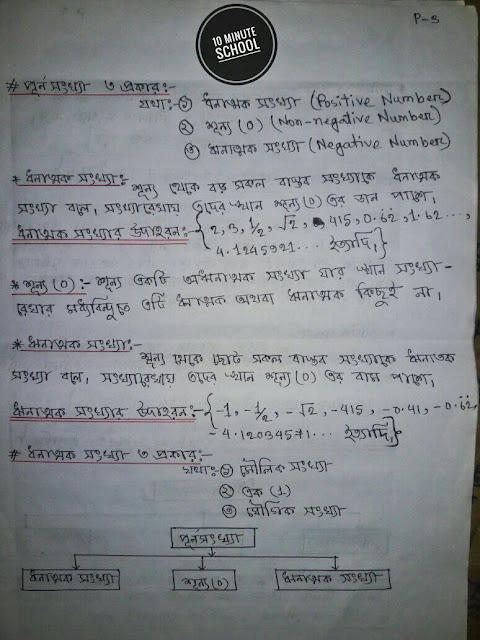 10 MINUTE
SCHOOL
P-3
# পূর্ন সংখ্যা ৩ প্রকার:-
যথা:- ① ধনাত্মক সংখ্যা (Positive Number)
② শূন্য (0) (Non-negative Number)
③ ঋনাত্মক সংখ্যা (Negative Number)
* ধনাত্মক সংখ্যা:- শূন্য থেকে বড় সকল বাস্তব সংখ্যাকে ধনাত্মক
সংখ্যা বলে। সংখ্যারেখায় তাদের স্থান শূন্য (0) এর ডান পাশে।
ধনাত্মক সংখ্যার উদাহরন:- {2, 3, 1/2, √2, 415, 0.6̇2̇, 1.62...,
4.1245921... ইত্যাদি}
* শূন্য (0):- শূন্য একটি অঋনাত্মক সংখ্যা যার স্থান সংখ্যা-
রেখার মধ্যবিন্দুতে এটি ধনাত্মক অথবা ঋনাত্মক কিছুই না।
* ঋনাত্মক সংখ্যা:-
শূন্য থেকে ছোট সকল বাস্তব সংখ্যাকে ঋনাত্মক
সংখ্যা বলে। সংখ্যারেখায় তাদের স্থান শূন্য (0) এর বাম পাশে।
ঋনাত্মক সংখ্যার উদাহরন:- {-1, -1/2, -√2, -415, -0.41, -0.6̇2̇,
-4.12034571... ইত্যাদি}
# ধনাত্মক সংখ্যা ৩ প্রকার:-
যথা:- ① মৌলিক সংখ্যা
② এক (1)
③ যৌগিক সংখ্যা
পূর্নসংখ্যা
ধনাত্মক সংখ্যা শূন্য (0) ঋনাত্মক সংখ্যা